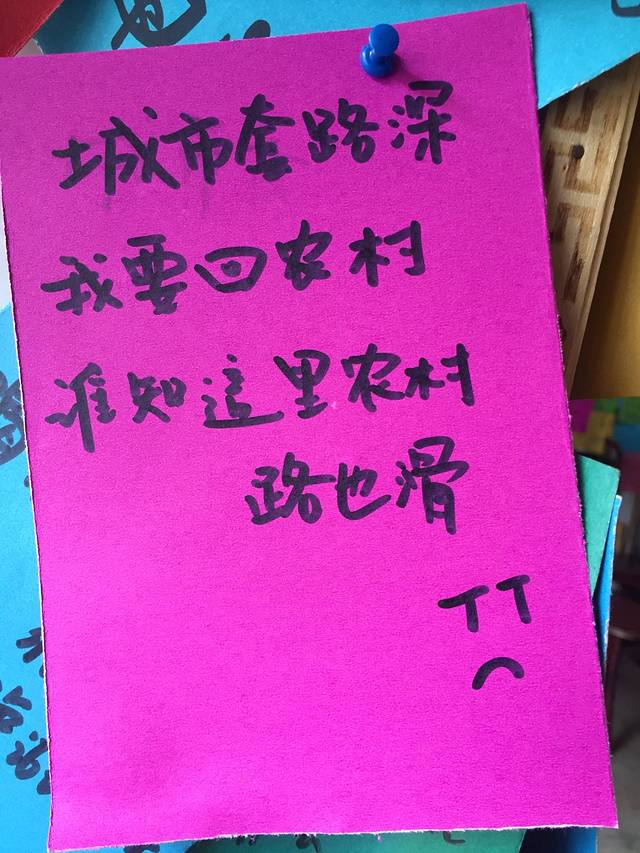 城市套路深
我要回农村
谁知這里农村
路也滑
TT